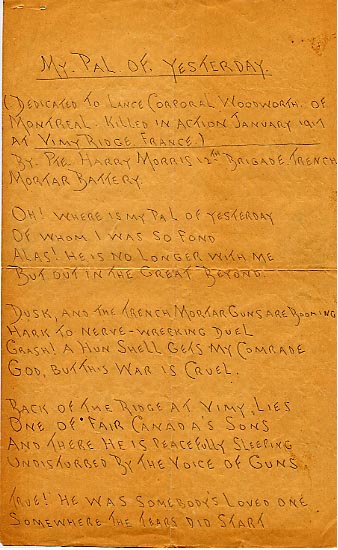 MY. PAL OF. YESTERDAY.
(DEDICATED TO LANCE CORPORAL WOODWORTH. OF
MONTREAL. KILLED IN ACTION JANUARY 1917
AT VIMY RIDGE. FRANCE.)
BY. PTE. HARRY MORRIS 12TH BRIGADE TRENCH
MORTAR BATTERY
OH! WHERE IS MY PAL OF YESTERDAY
OF WHOM I WAS SO FOND
ALAS! HE IS NO LONGER WITH ME
BUT OUT IN THE GREAT BEYOND.
DUSK, AND THE TRENCH MORTAR GUNS ARE BOOMING
HARK TO NERVE-WRECKING DUEL
CRASH! A HUN SHELL GETS MY COMRADE
GOD, BUT THIS WAR IS CRUEL.
BACK OF THE RIDGE AT VIMY, LIES
ONE OF FAIR CANADA'S SONS
AND THERE HE IS PEACEFULLY SLEEPING
UNDISTURBED BY THE VOICE OF GUNS.
TRUE! HE WAS SOMEBODY'S LOVED ONE
SOMEWHERE THE TEARS DID START